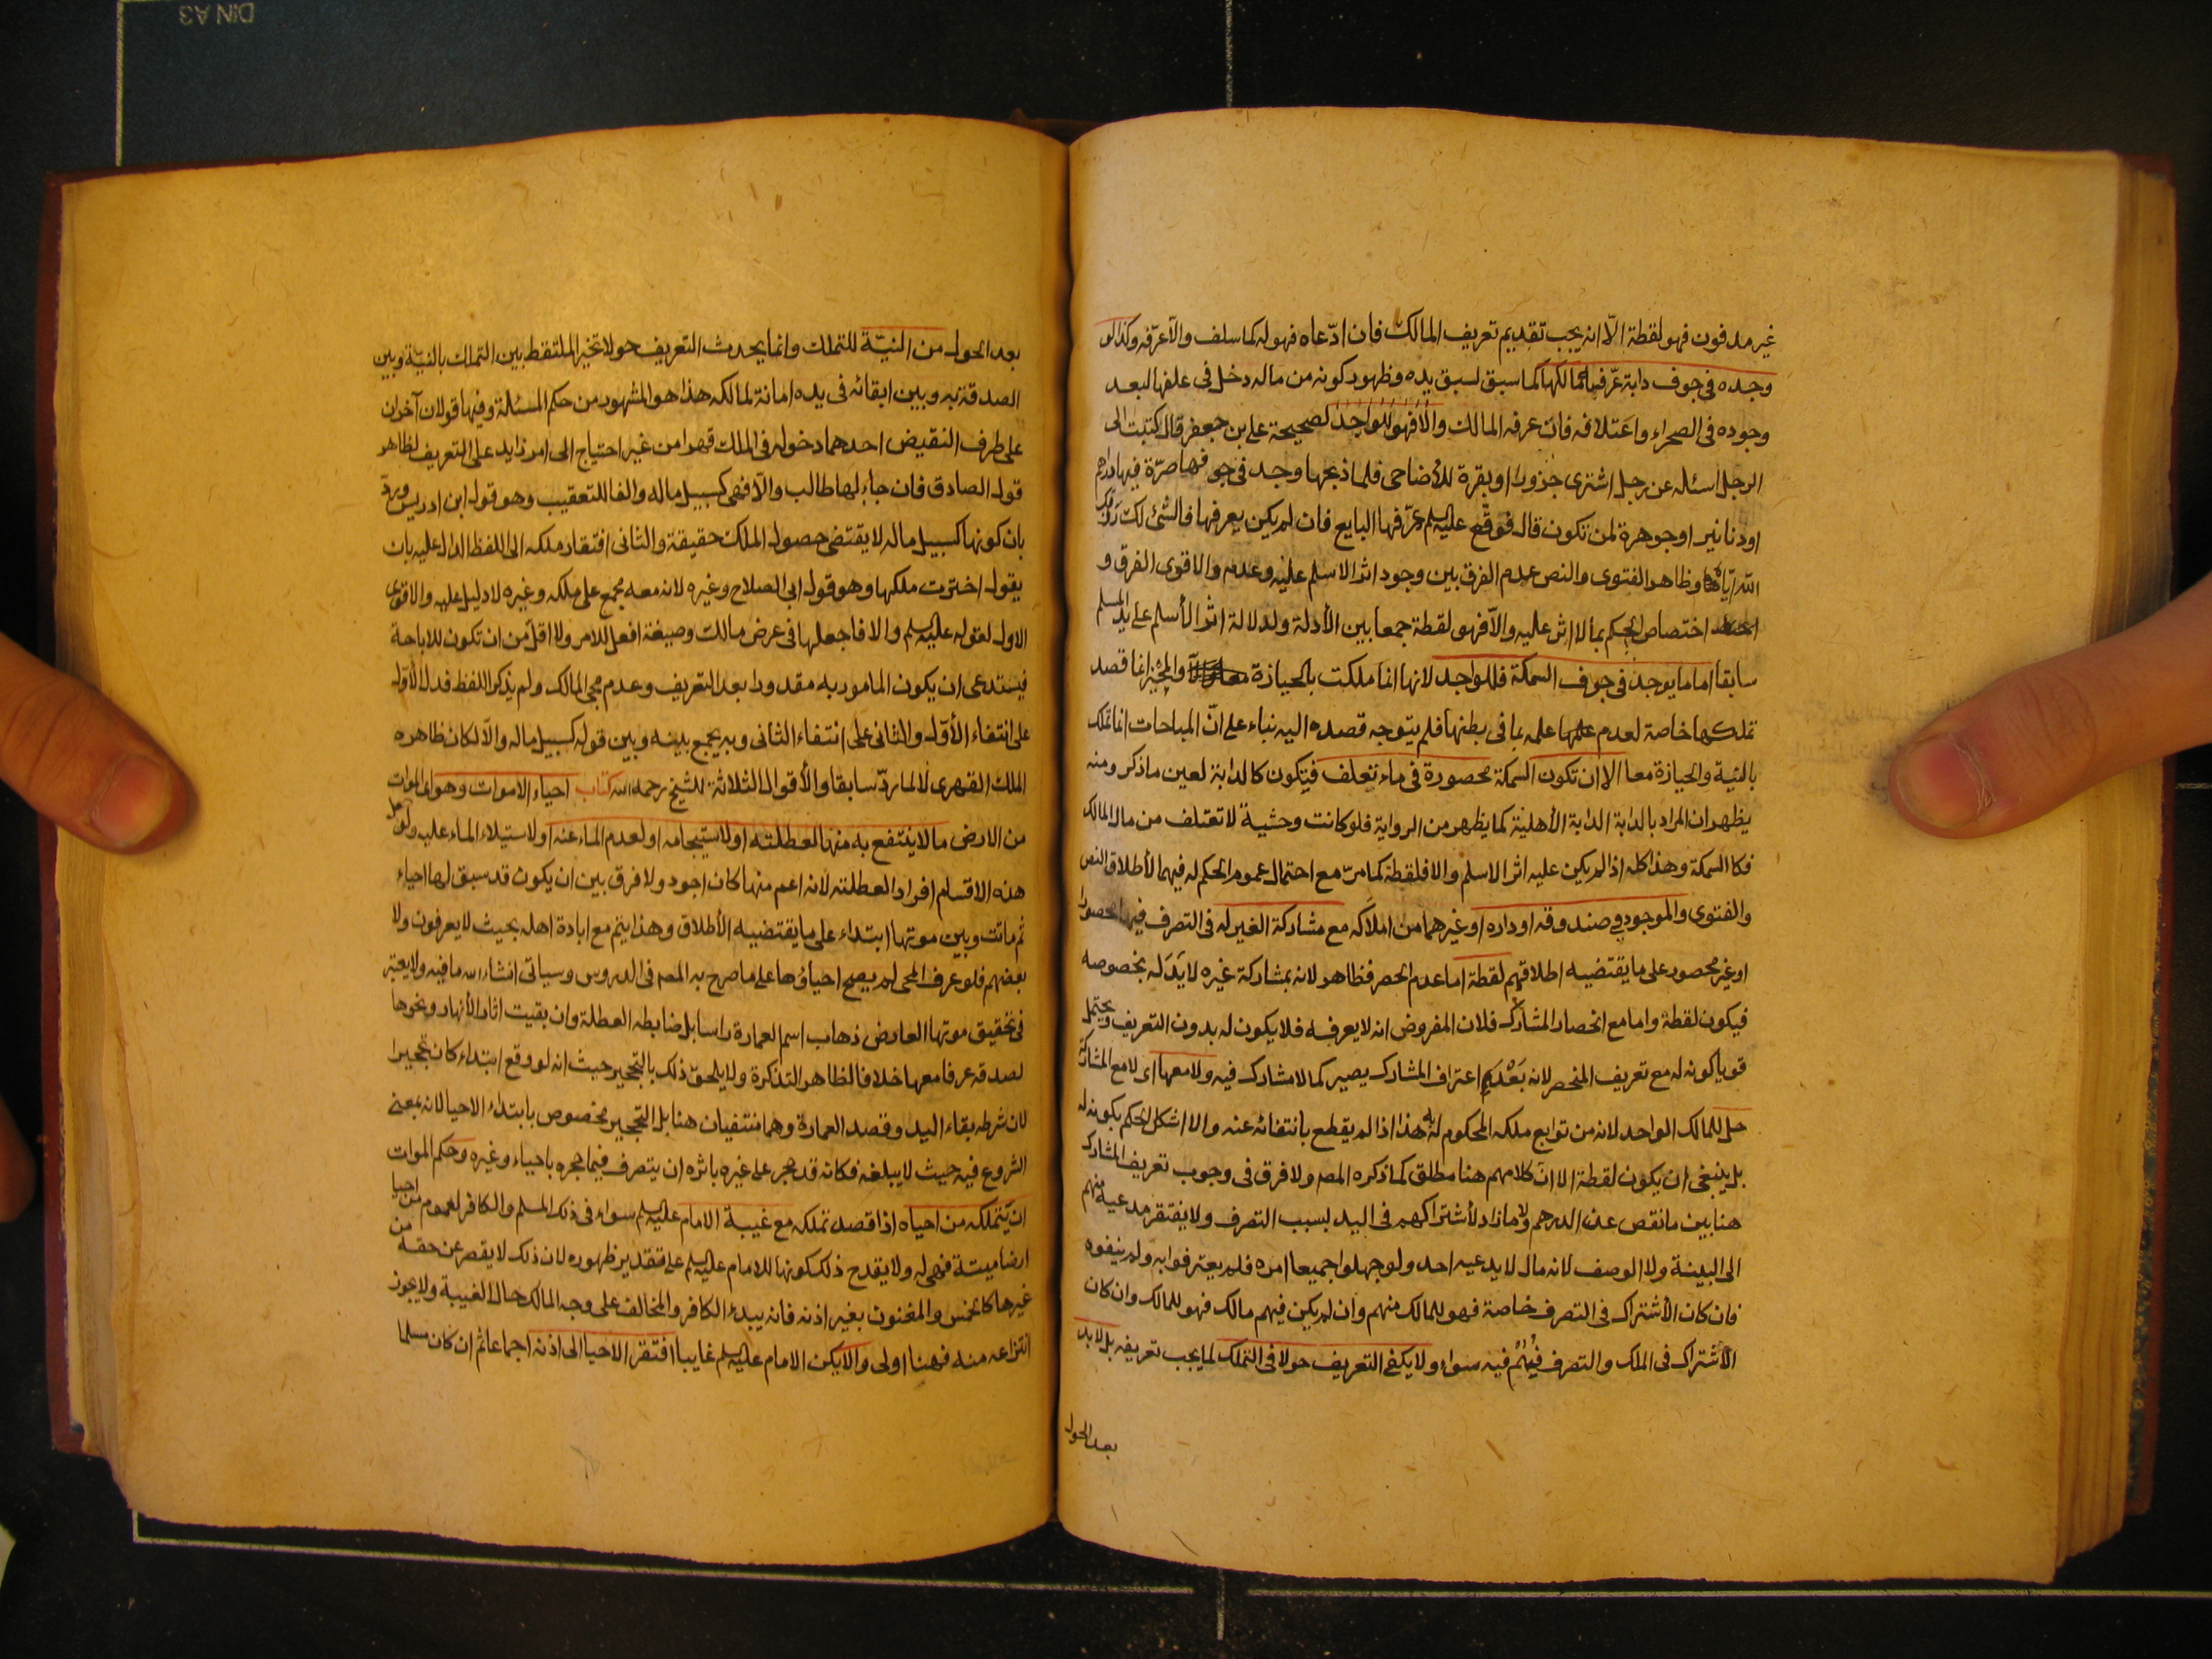 غير مدفون فهو لقطة الّا انه يجب تقديم تعريف المالك فان ادّعاه فهو له كما سلف والّا عرّفه وكذا لو
وجده في جوف دابة عرّفه مالكها كما سبق لسبق يده وظهور كونه من ماله دخل في علفها لبعد
وجوده في الصحراء واعتلافه فان عرفه المالك والّا فهو للواجد لصحيحة علي بن جعفر قال كتبت الى
الرجل اسئله عن رجل اشترى جزورا او بقرة للأضاحي فلما ذبحها وجد في جوفها صرّة فيها دراهم
او دنانير او جوهرة لمن تكون قال فوقّع عليه السلم عرّفها البايع فان لم يكن يعرفها فالشئ لك رزقك
الله ايّاه وظاهر الفتوى والنص عدم الفرق بين وجود اثر الاسلم عليه وعدمه والاقوى الفرق و
اختصاص الحكم بما لا اثر عليه والّا فهو لقطة جمعا بين الأدلة ولدلالة اثر الأسلم على يد المسلم
سابقا اما ما يوجد في جوف السمكة فللواجد لانها انما ملكت بالحيازة والمحيز انما قصد
تملكها خاصة لعدم علمه بما في بطنها فلم يتوجه قصده اليه بناء على انّ المباحات انما تملك
بالنية والحيازة معا الا ان تكون السمكة محصورة في ماء تعلف فيتكون كالدابة لعين ما ذكر ومنه
يظهر ان المراد بالدابة الدابة الأهلية كما يظهر من الرواية فلو كانت وحشية لا تعتلف من مال المالك
فكالسمكة وهذا كله اذا لم يكن عليه اثر الاسلم والا فلقطة كما مرّ مع احتمال عموم الحكم له فيهما لأطلاق النص
والفتوى والموجود في صندوقه او داره او غيرهما من املاكه مع مشاركة الغير له في التصرف فيها محصورا
او غير محصور على ما يقتضيه اطلاقهم لقطة اما عدم الحصر فظاهر لانه بمشاركة غيره لا يد له بخصوصه
فيكون لقطة واما مع انحصار المشارك فلان المفروض انه لا يعرفه فلا يكون له بدون التعريف ويحتمل
قويا كونه له مع تعريف المنحصر لانه بعدم اعتراف المشارك يصير كما لا مشارك فيه ولا معها اى لا مع المشاركة
حل للمالك الواحد لانه من توابع ملكه المحكوم له به هذا اذا لم يقطع بانتفائه عنه والا اشكل الحكم بكونه له
بل ينبغي ان يكون لقطة الا ان كلامهم هنا مطلق كما ذكره المصـ ولا فرق في وجوب تعريف المشارك
هنا بين ما نقص عن الدرهم ولا ما زاد لأشتراكهم في اليد بسبب التصرف ولا يفتقر مدعيه منهم
الى البينة ولا الوصف لانه مال لا يدعيه احد ولو جهلوا جميعا امره فلم يعترفوا به ولم ينفوه
فان كان الأشتراك في التصرف خاصة فهو للمالك منهم وان لم يكن فيهم مالك فهو للمالك وان كان
الأشتراك في الملك والتصرف فهم فيه سواء ولا يكفي التعريف حولا في التملك لما يجب تعريفه بل لا بد
بعد الحول
بعد الحول من النيّة للتملك وانما يحدث التعريف حولا تخير الملتقط بين التملك بالنيّة وبين
الصدقة به وبين ابقائه في يده امانة لمالكه هذا هو المشهور من حكم المسئلة وفيها قولان آخران
على طرف النقيض احدهما دخوله في الملك قهرا من غير احتياج الى امر زايد على التعريف لظاهر
قول الصادق فان جاء لها طالب والّا فهي كسبيل ماله والفا للتعقيب وهو قول ابن ادريس وردّ
بان كونها كسبيل ماله لا يقتضى حصول الملك حقيقة والثاني افتقار ملكه الى اللفظ الدال عليه بان
يقول اخترت ملكها وهو قول ابي الصلاح وغيره لانه معه مجمع على ملكه وغيره لا دليل عليه والاقوى
الاول لقوله عليه السلم والا فاجعلها في عرض مالك وصيغة افعل للامر ولا اقلّ من ان تكون للاباحة
فيستدعى ان يكون المامور به مقدورا بعد التعريف وعدم مجئ المالك ولم يذكر اللفظ فدلّ الأوّل
على انتفاء الأوّل والثاني على انتفاء الثاني وبه يجمع بينه وبين قوله كسبيل ماله والّا لكان ظاهره
الملك القهري لا لما ردّ سابقا والأقوال الثلاثة للشيخ رحمه الله كتاب احياء الاموات وهو اى الموات
من الارض ما لا ينتفع به منها لعطلته او لاستيجامه او لعدم الماء عنه او لاستيلاء الماء عليه ولو جعل
هذه الاقسام افراد العطلته لانه اعم منها كان اجود ولا فرق بين ان يكون قد سبق لها احياء
ثم ماتت وبين موتها ابتداء على ما يقتضيه الأطلاق وهذا يتم مع ابادة اهله بحيث لا يعرفون ولا
بعضهم فلو عرف المحي لم يصح احياؤها على ما صرح به المصـ في الدروس وسياتي انشاء الله ما فيه ولا يعتبر
في تحقيق موتها العارض ذهاب اسم العمارة راسا بل ضابطه العطلة وان بقيت اثار الأنهار ونحوها
لصدقه عرفا معها خلافا لظاهر التذكرة ولا يلحق ذلك بالتحجير حيث انه لو وقع ابتداء كان تحجيرا
لان شرطه بقاء اليد وقصد العمارة وهما منتفيان هنا بل التحجير مخصوص بابتداء الاحيا لانه بمعنى
الشروع فيه حيث لا يبلغه فكانه قد حجر على غيره باثره ان يتصرف فيما حجره باحياء وغيره وحكم الموات
ان يتملكه من احياه اذا قصد تملكه مع غيبة الامام عليه السلم سواء في ذلك المسلم والكافر لعموم من احيا
ارضا ميتة فهي له ولا يقدح ذلك كونها للامام عليه السلم على تقدير ظهوره لان ذلك لا يقصر عن حقه من
غيرها كالخمس والمغنون بغير اذنه فانه بيد الكافر والمخالف على وجه المالك حال الغيبة ولا يجوز
انتزاعه منه فهنا اولى والا يكن الامام عليه السلم غايبا افتقر الاحيا الى اذنه اجماعا ثم ان كان مسلما